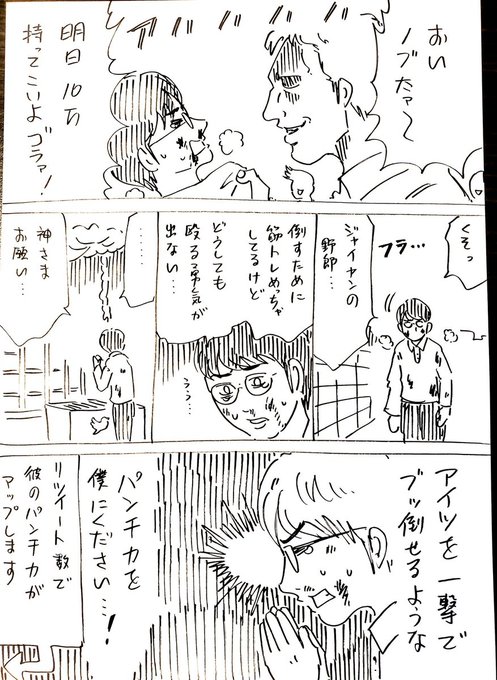 おい
ノブたァ〜
アババババ
明日10万
持ってこいよ
ゴラァ！
くそっ
フラ…
ジャイヤンの
野郎…
倒すために
筋トレめっちゃ
してるけど
どうしても
殴る勇気が
出ない…
うう…
……
神さま
お願い…
アイツを一撃で
ブッ倒せるような
パンチ力を
僕にください…！
リツイート数で
彼のパンチ力が
アップします